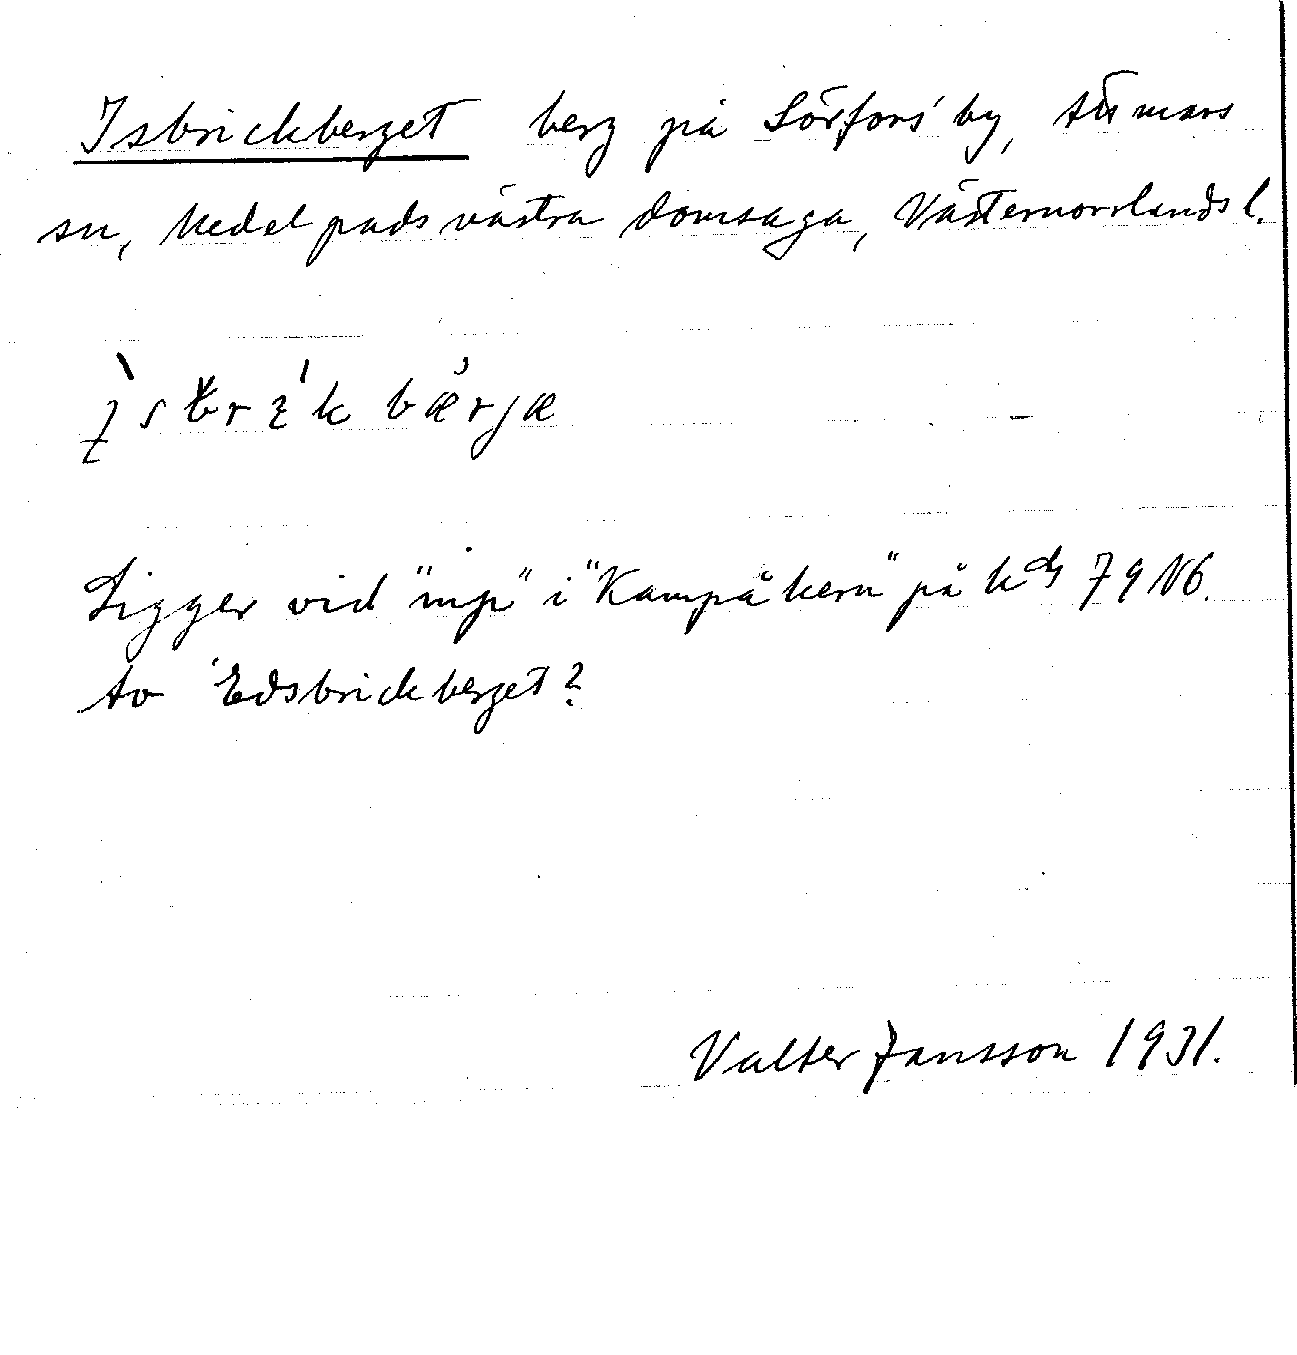 Isbrickberget berg på Sörfors' by, Attmars
sn, Medelpads västra domsaga, Västernorrlands l.
Ligger vid "mp" i "Kampåkern" på kbl 79 NO.
Av Edsbrickberget?
Valter Jansson 1931.